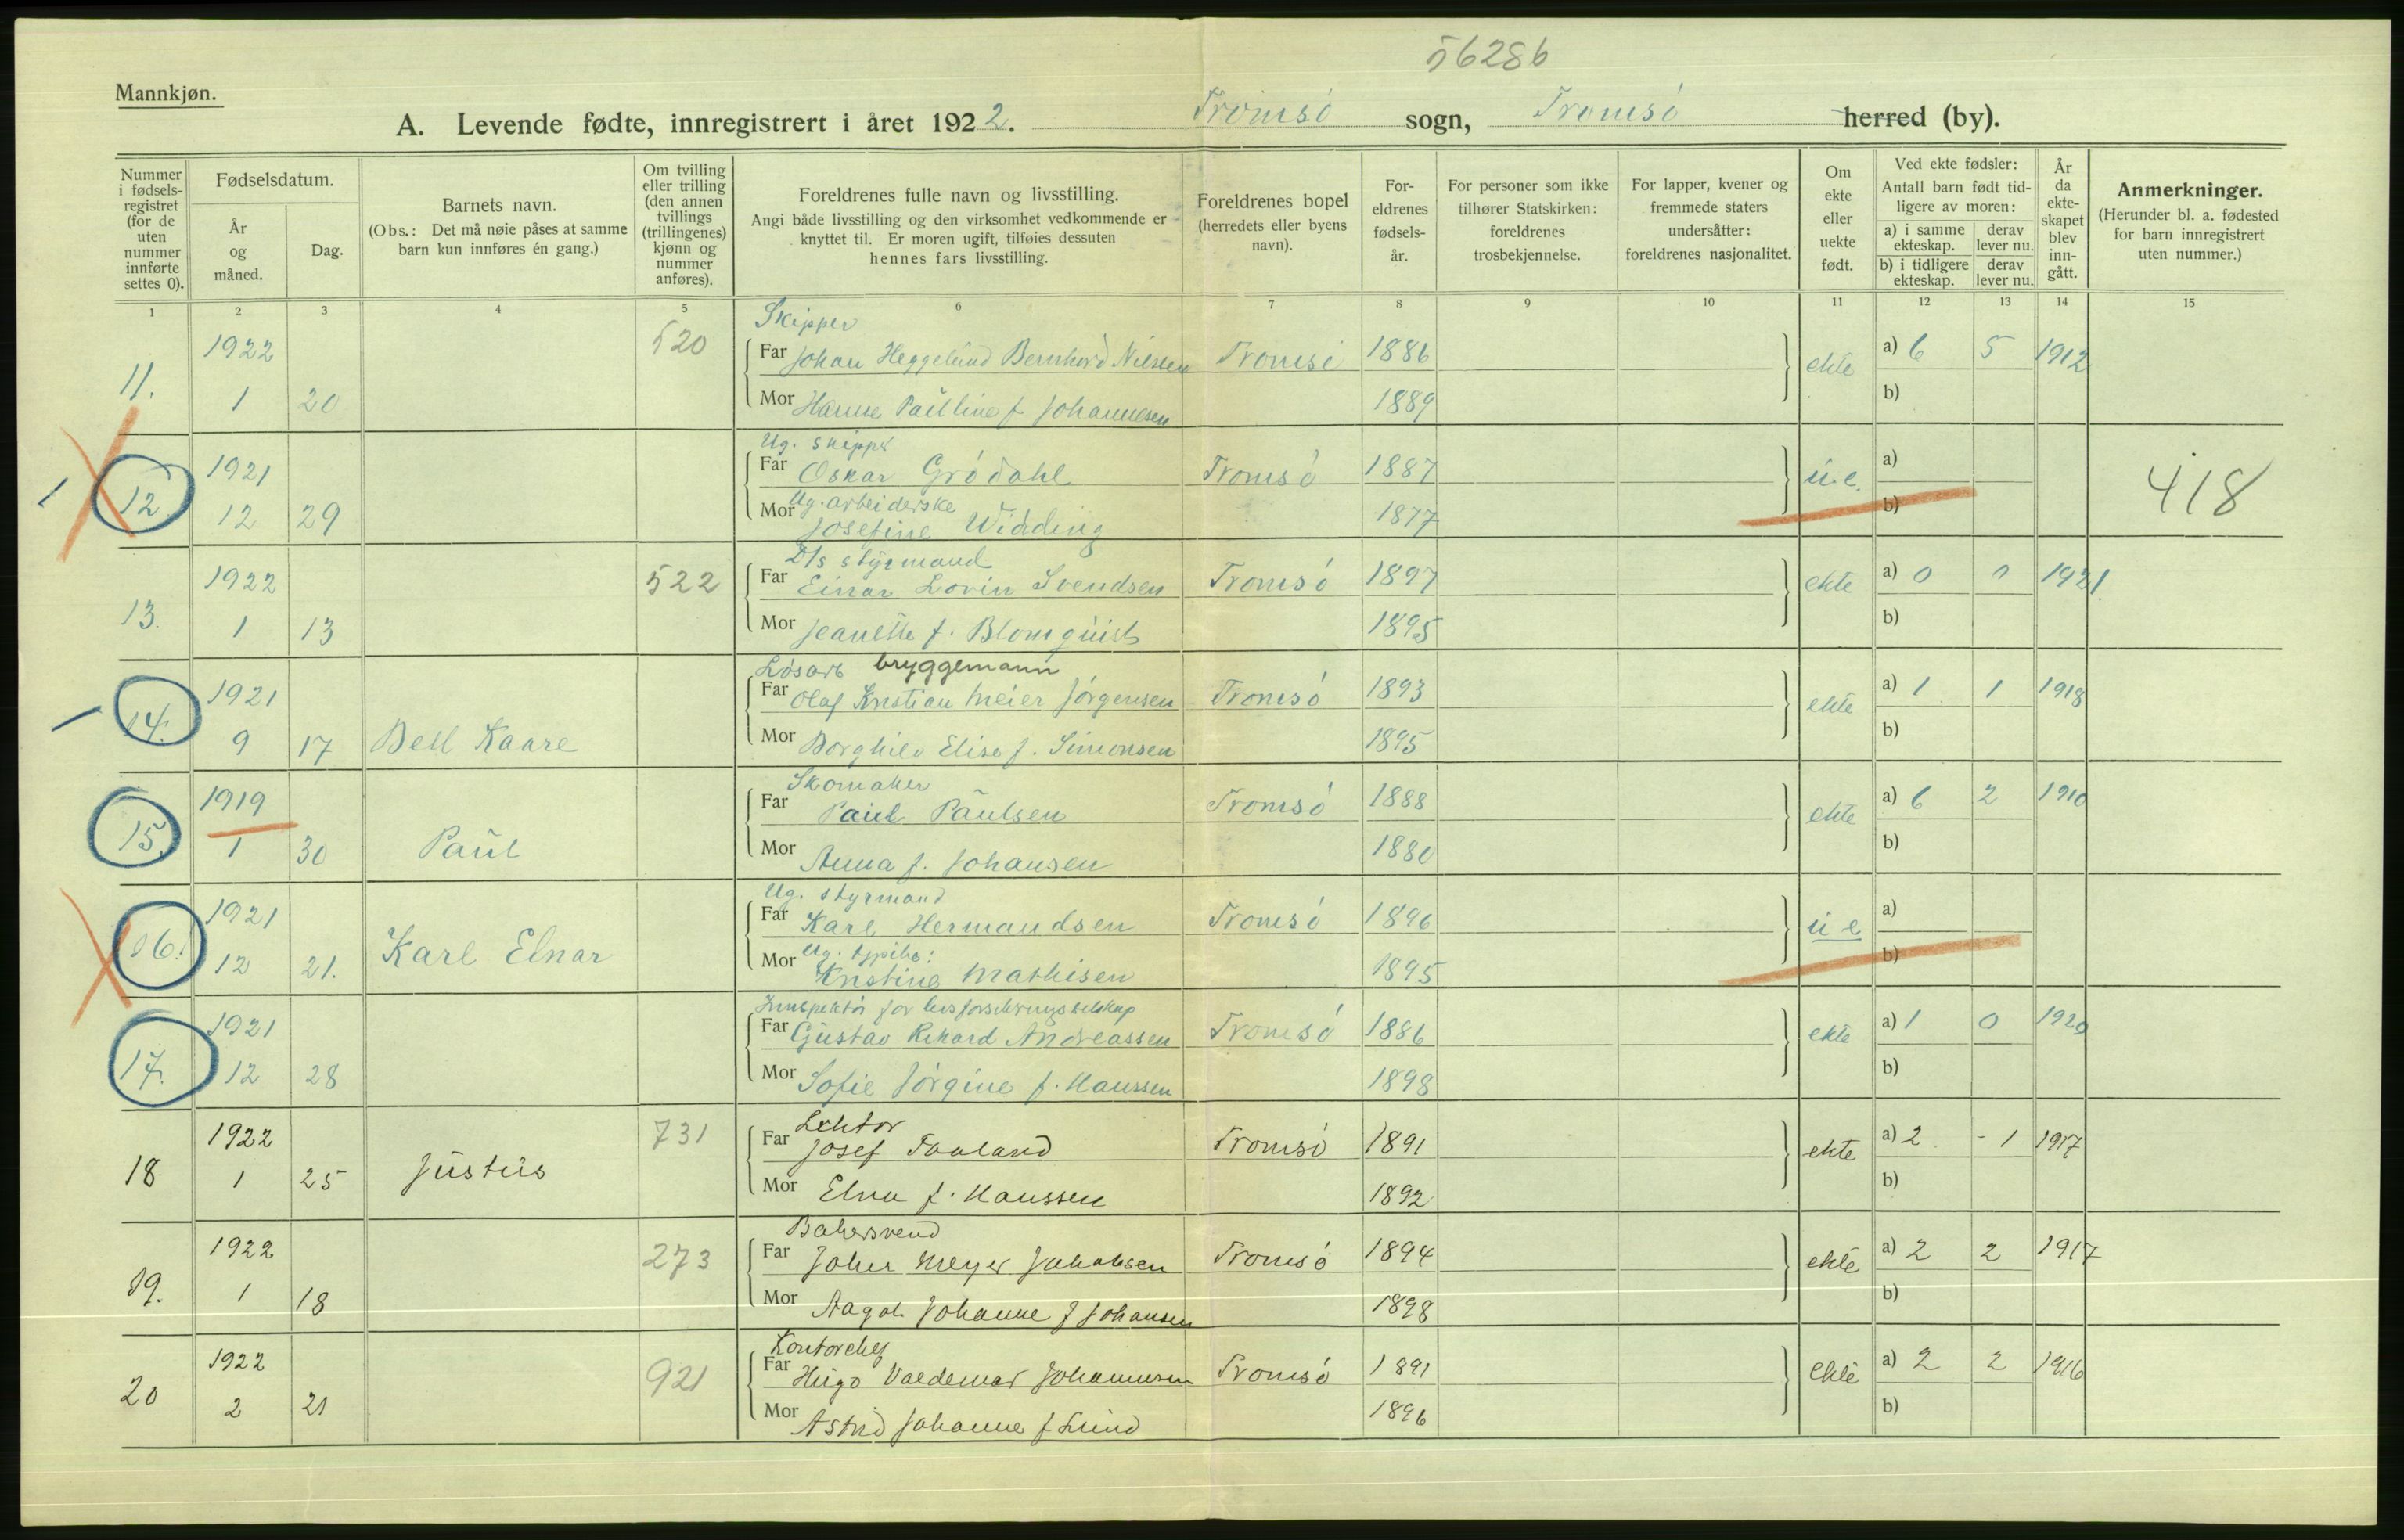 56286
Mannkjøn.
A. Levende fødte, innregistrert i året 1922. Tromsö sogn, Tromsö herred (by).
Nummer i fødsels-registret (for de uten nummer innførte settes 0).
Fødselsdatum.
År og måned.
Dag.
Barnets navn.
(Obs.: Det må nøie påses at samme barn kun innføres én gang.)
Om tvilling eller trilling (den annen tvillings (trillingenes) kjønn og nummer anføres).
Foreldrenes fulle navn og livsstilling.
Angi både livsstilling og den virksomhet vedkommende er knyttet til. Er moren ugift, tilføies dessuten hennes fars livsstilling.
Foreldrenes bopel (herredets eller byens navn).
For-eldrenes fødsels-år.
For personer som ikke tilhører Statskirken: foreldrenes trosbekjennelse.
For lapper, kvener og fremmede staters undersåtter: foreldrenes nasjonalitet.
Om ekte eller uekte født.
Ved ekte fødsler:
Antall barn født tid-ligere av moren:
a) i samme ekteskap.
derav lever nu.
b) i tidligere ekteskap.
derav lever nu.
År da ekte-skapet blev inn-gått.
Anmerkninger.
(Herunder bl. a. fødested for barn innregistrert uten nummer.)
1 2 3 4 5 6 7 8 9 10 11 12 13 14 15
Skipper
11. 1922 520 Far Johan Heggelund Bernhard Nilsen Tromsö 1886 ekte a) 6 5 1912
1 20 Mor Hanne Pauline f Johannesen 1889 b)
Ug. skipper
12. 1921 Far Oskar Grödahl Tromsö 1887 u.e. a) 418
Ug. arbeiderske
12 29 Mor Josefine Widding 1877 b)
D/s styrmand
13. 1922 522 Far Einar Lovin Svendsen Tromsö 1897 ekte a) 0 0 1921.
1 13 Mor Jeanette f. Blomquist 1895 b)
Løsarb bryggemann
14. 1921 Far Olaf Kristian Meier Jörgensen Tromsö 1893 ekte a) 1 1 1918
9 17 Dell Kaare Mor Borghild Elise f. Simonsen 1895 b)
Skomaker
15. 1919 Far Paul Paulsen Tromsö 1888 ekte a) 6 2 1910
1 30 Paul Mor Anna f. Johansen 1880 b)
Ug. styrmand
16. 1921 Far Karl Hermandsen Tromsö 1896 u e a)
Ug.
12 21. Karl Elnar Mor Kristine Mathisen 1895 b)
Innspektör for livsforsikringsselskap
17. 1921 Far Gustav Rikard Andreassen Tromsö 1886 ekte a) 1 0 1920
12 28 Mor Sofie Jörgine f. Hanssen 1898 b)
Lektor
18 1922 731 Far Josef Tveland Tromsö 1891 ekte a) 2 - 1 1917
1 25 Justus Mor Elna f. Hanssen 1892 b)
Bakersvend
19. 1922 273 Far Johan Meyer Jakobsen Tromsö 1894 ekte a) 2 2 1917
1 18 Mor Aagot Johanne f Johansen 1898 b)
Kontorchef
20 1922 921 Far Hugo Valdemar Johannesen Tromsö 1891 ekte a) 2 2 1916
2 21 Mor Astrid Johanne f Lund 1896 b)